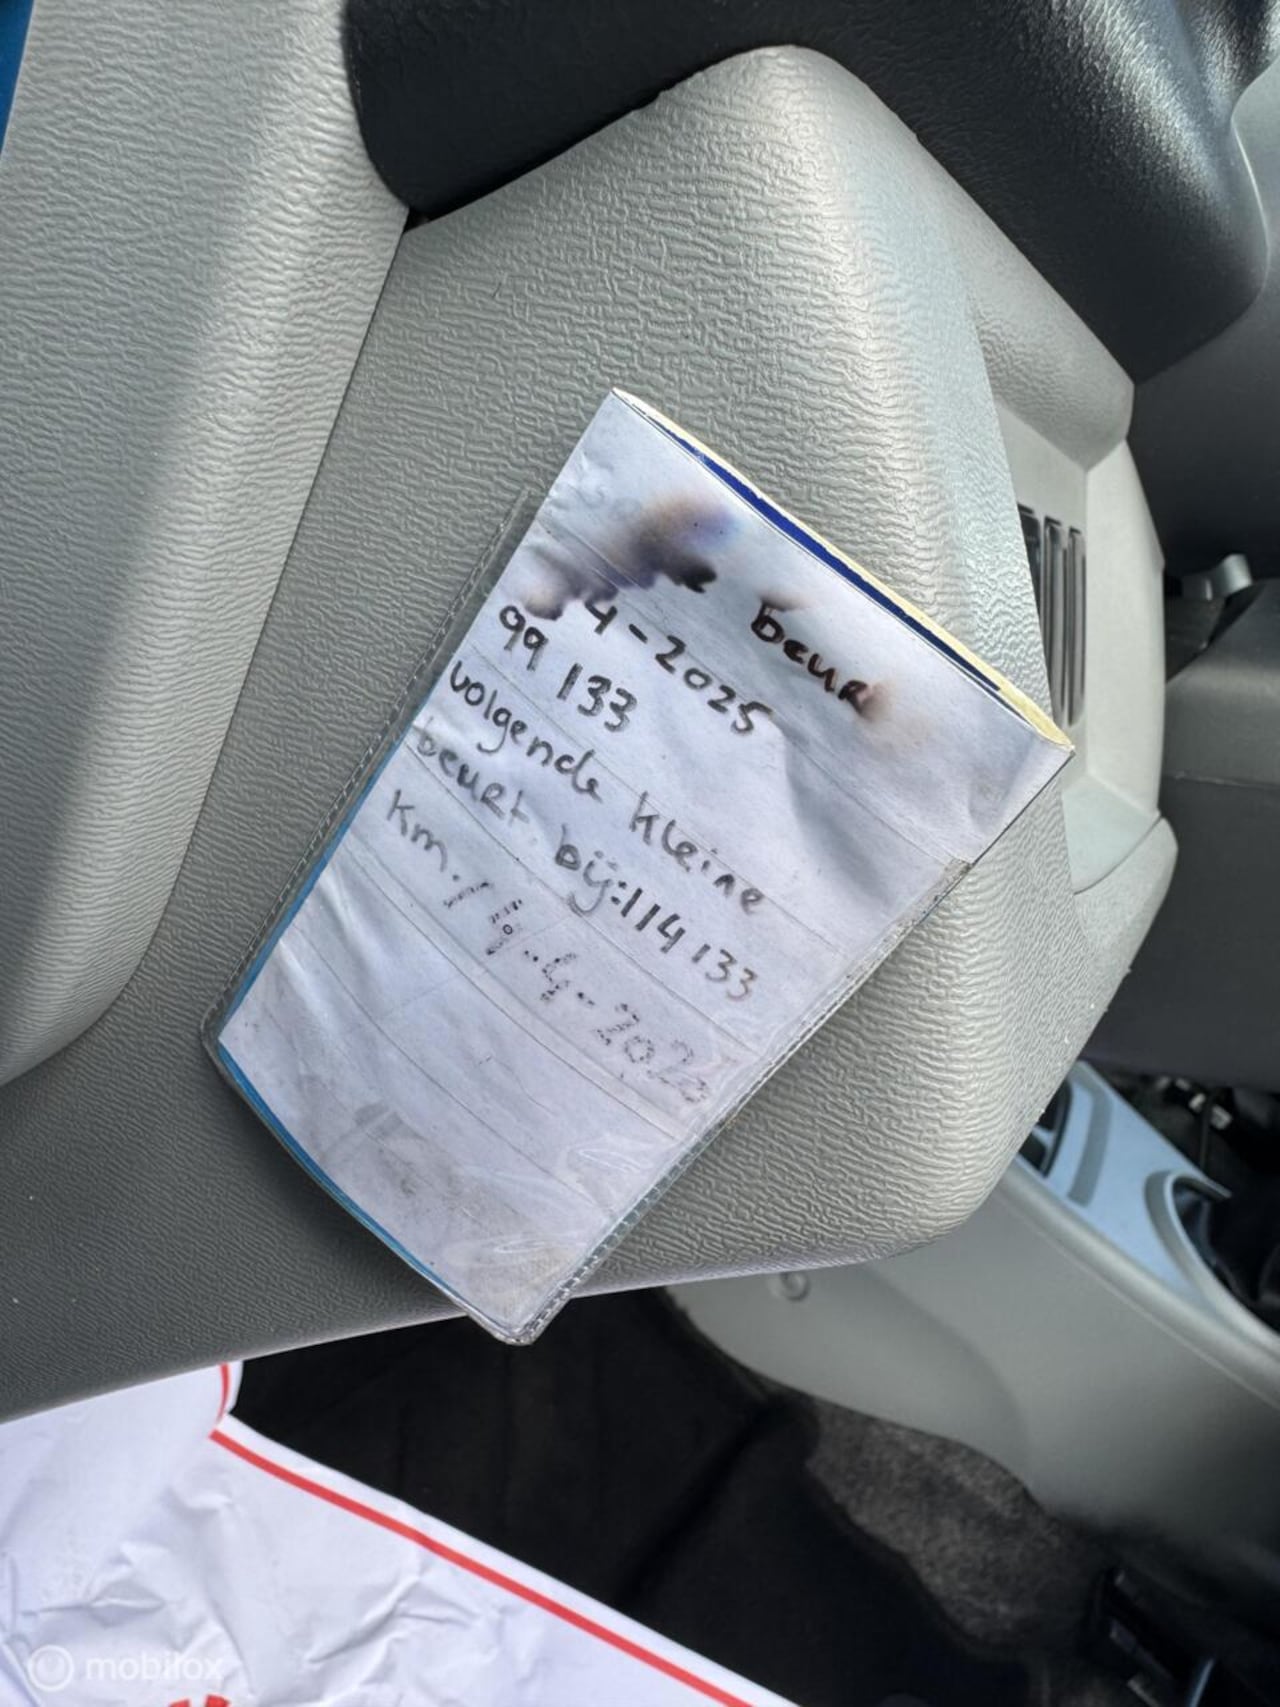 beurt
4-2025
99 133
volgende kleine
beurt bij: 114 133
km. / 4-2026
mobilox